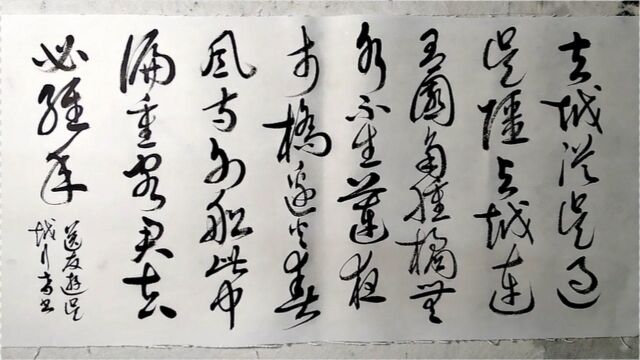 去越從吳過
吳疆與越連
有園多種橘無
水不生蓮夜
市橋邊火春
風寺外船此中
偏重客君去
必經年
送友遊吳
越